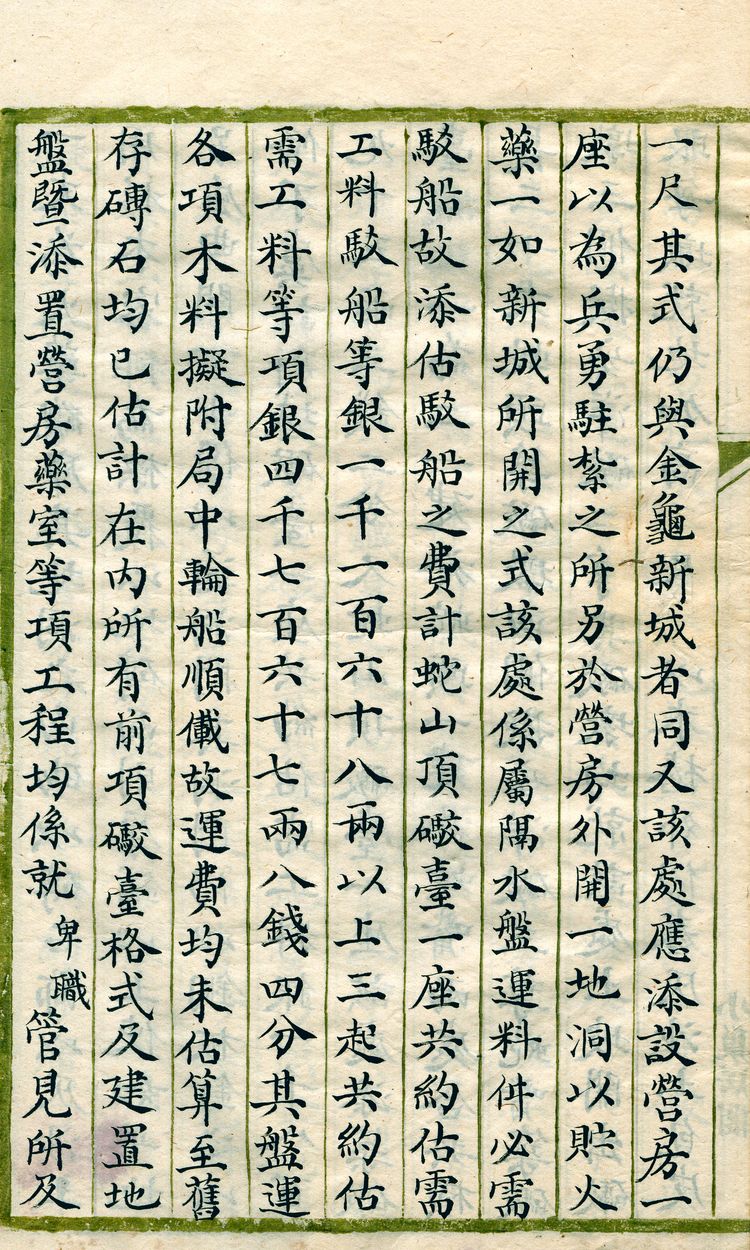 一尺其式仍與金龜新城者同又該處應添設營房一
座以為兵勇駐紮之所另於營房外開一地洞以貯火
藥一如新城所開之式該處係屬隔水盤運料件必需
駁船故添估駁船之費計蛇山頂礮臺一座共約估需
工料駁船等銀一千一百六十八兩以上三起共約估
需工料等項銀四千七百六十七兩八錢四分其盤運
各項木料擬附局中輪船順儎故運費均未估算至舊
存磚石均已估計在內所有前項礮臺格式及建置地
盤暨添置營房藥室等項工程均係就卑職管見所及